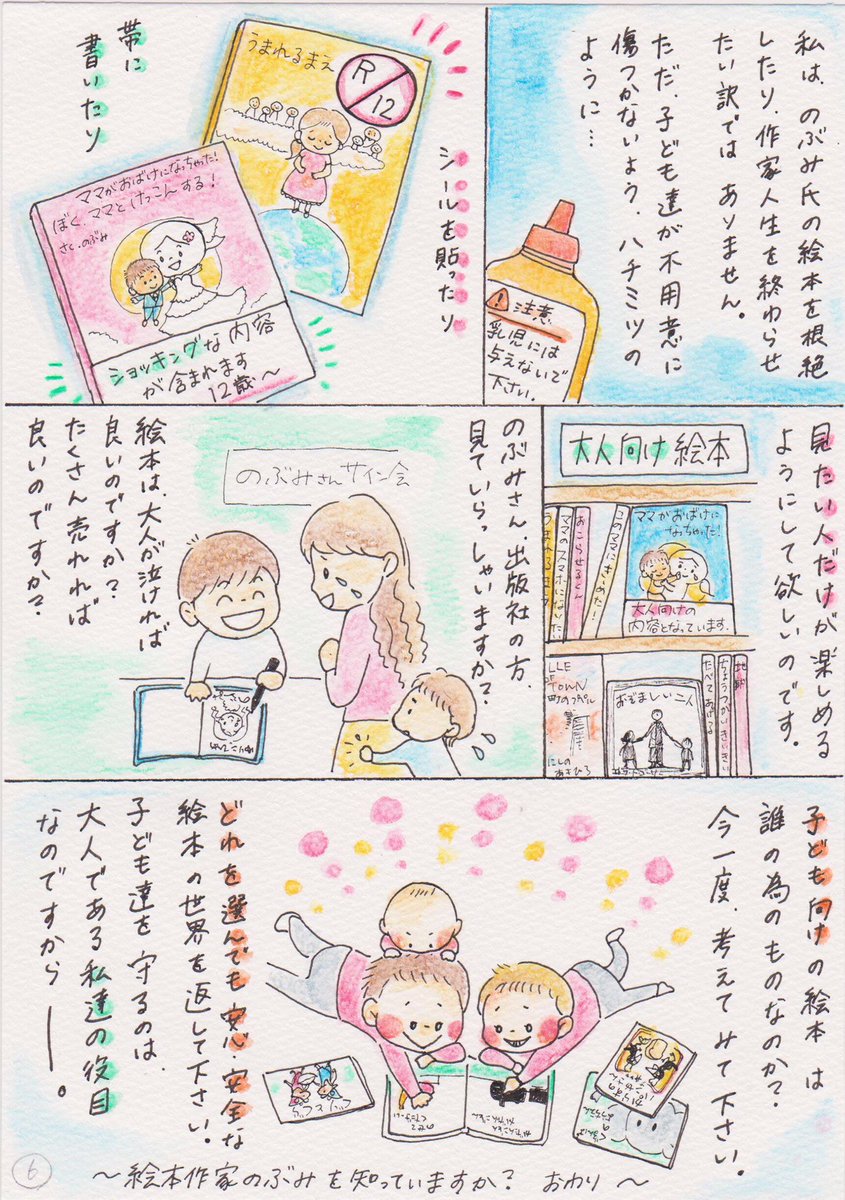 私は、のぶみ氏の絵本を根絶
したり、作家人生を終わらせ
たい訳では ありません。
ただ、子ども達が不用意に
傷つかないよう、ハチミツの
ように…
⚠注意
乳児には
与えないで
下さい。
シールを貼ったり
うまれるまえ
R
12
帯に
書いたり
ママがおばけになっちゃった!
ぼく、ママとけっこんする!
さく・のぶみ
ショッキングな内容
が含まれます
12歳〜
見たい人だけが楽しめる
ようにして欲しいのです。
大人向け絵本
ママがおばけに
なっちゃった!
大人向けの
内容となっています.
このママにきめた…
おこらせるくん
ママのスマホになりたい
うまれるまえ
おぞましい二人
ちょうつがいきいきい
たべてあげる
TOWN
にしの
あきひろ
のぶみさん、出版社の方、
見ていらっしゃいますか?
のぶみさんサイン会
絵本は、大人が泣ければ
良いのですか?
たくさん売れれば
良いのですか?
子ども向けの絵本 は
誰の為のものなのか?
今一度、考えてみて下さい。
どれを選んでも安心・安全な
絵本の世界を返して下さい。
子ども達を守るのは、
大人である私達の役目
なのですから――。
〜絵本作家のぶみを知っていますか? おわり〜
6